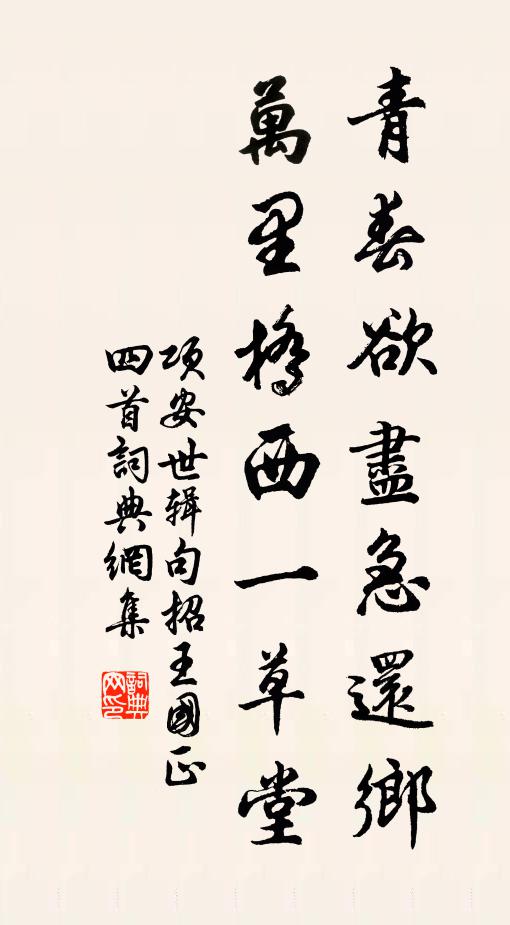 青春欲盡急還鄉
萬里橋西一草堂
项安世辑句招王國正
四首詞典網集
詞典网印